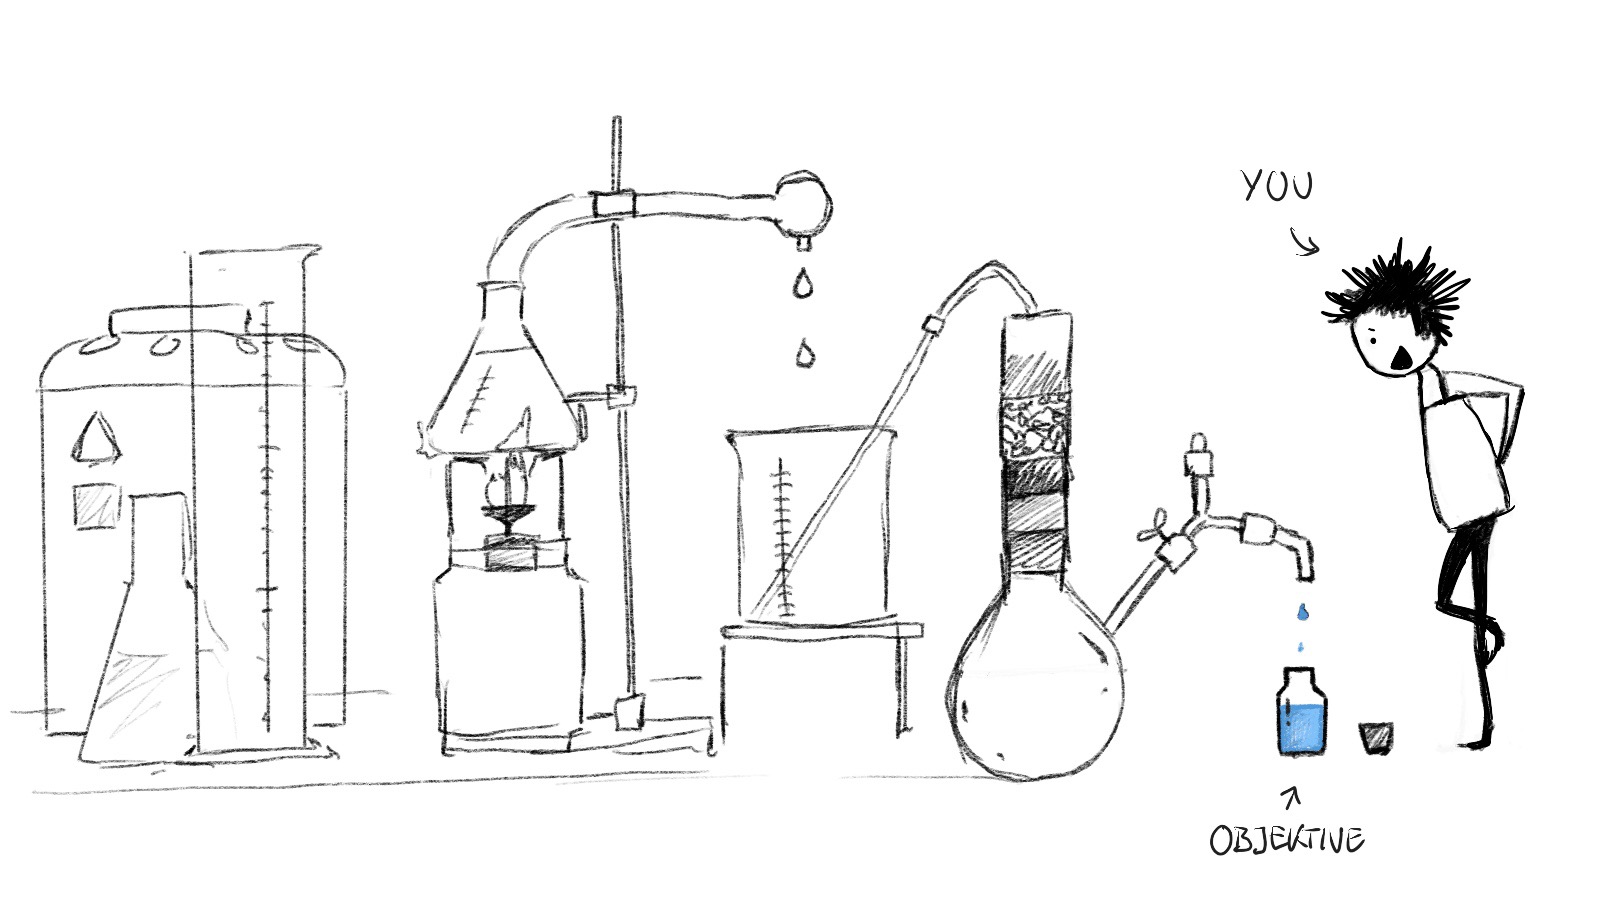 YOU
OBJEKTIVE